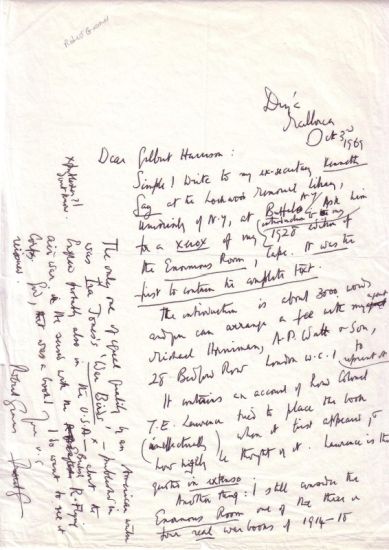 Robert Graves
Deyá
Mallorca
Oct 3rd
1969
Dear Gilbert Harrison:
Simple! Write to my ex-secretary Kenneth
Gay at the Lockwood Memorial Library,
University of N.Y, at Buffalo N.Y. Ask him
for a xerox of my introduction to my
1928 edition of
the Enormous Room, Cape. It was the
first to contain the complete text.
The introduction is about 3000 words
and you can arrange a fee with my agent
Michael Horniman, A.P. Watt & Son,
26 Bedford Row London W.C.1. to reprint it
It contains an account of how Colonel
T.E. Lawrence tried to place the book
(ineffectually) when it first appeared, &
how highly he thought of it. Lawrence is there
quoted in extenso.
Another thing: I still consider the
Enormous Room one of the three or
four real war books of 1914-18
The only one of equal quality by an American writer
was 'War Birds' – published in
England probably also in the U.S.A. – about the
air war in the
Corps. God, that was a book! I do want to see it
reissued.
Yours v. s.
Robert Graves